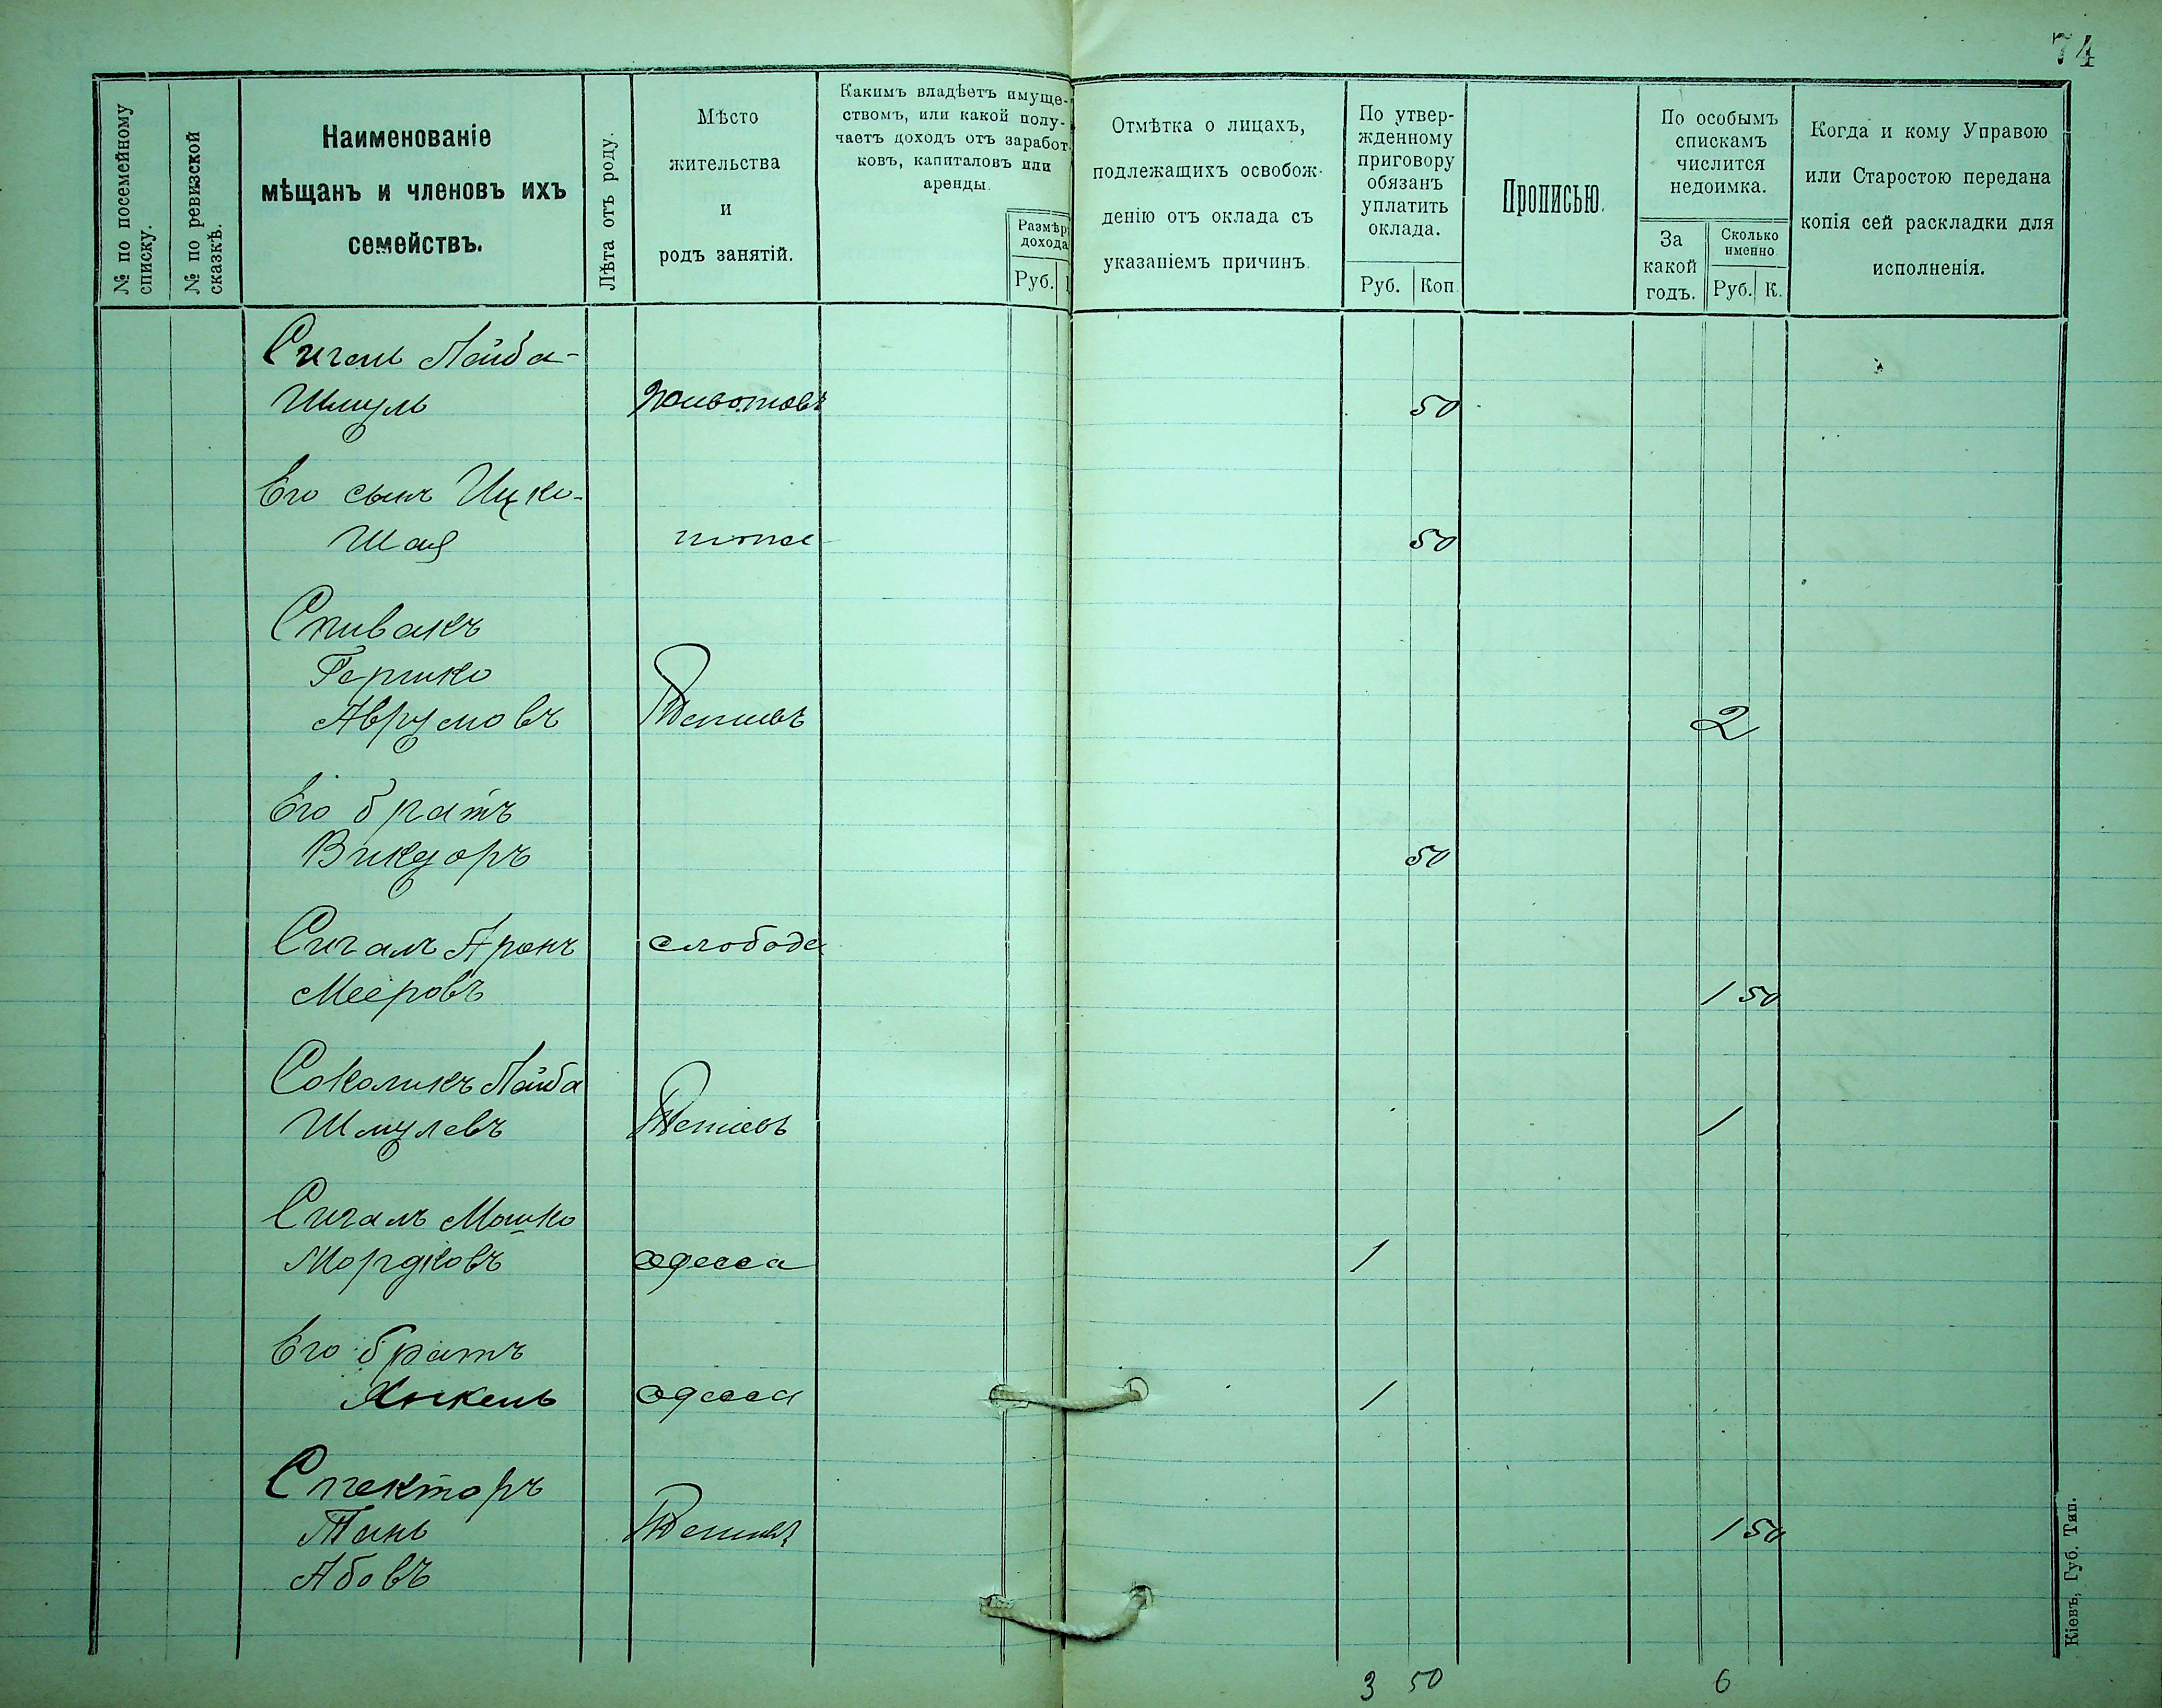 74
№ по посемейному
списку.
№ по ревизской
сказкѣ.
Наименованіе
мѣщанъ и членовъ ихъ
семействъ.
Лѣта отъ роду.
Мѣсто
жительства
и
родъ занятій.
Какимъ владѣетъ имуще-
ствомъ, или какой полу-
чаетъ доходъ отъ заработ-
ковъ, капиталовъ или
аренды.
Размѣръ
дохода
Руб.
Отмѣтка о лицахъ,
подлежащихъ освобож-
денію отъ оклада съ
указаніемъ причинъ.
По утвер-
жденному
приговору
обязанъ
уплатить
оклада.
Руб. Коп.
Прописью.
По особымъ
спискамъ
числится
недоимка.
За
какой
годъ.
Сколько
именно
Руб. К.
Когда и кому Управою
или Старостою передана
копія сей раскладки для
исполненія.
Сигаль Лейба-
Шмуль Животовъ 50
Его сынъ Ицко-
Шая тоже 50
Спивакъ
Гершко
Аврумовъ Тетіевъ 2
Его братъ
Викдоръ 50
Сигалъ Аронъ слобода
Мееровъ 1 50
Соколикъ Лейба
Шмулевъ Тетіевъ 1
Сигалъ Мошко
Мордковъ Одесса 1
Его братъ
Янкель Одесса 1
Спекторъ
Тань Тетіевъ 1 50
Абовъ
3 50 6
Кіевъ, Губ. Тип.